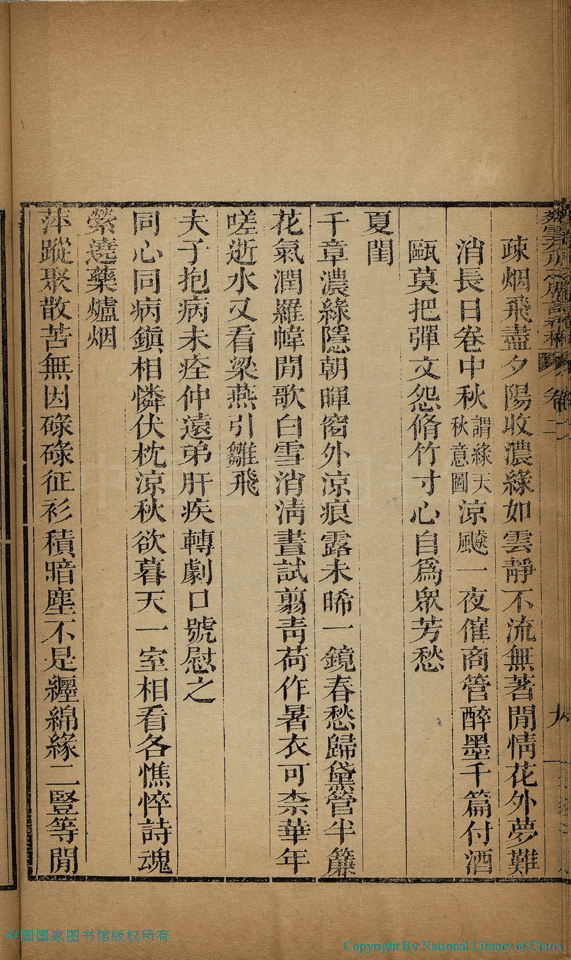 疎烟飛盡夕陽收濃緣如雲靜不流無著閒情花外夢難
消長日卷中秋謂緣天秋意圖涼飈一夜催商管醉墨千篇付酒
甌莫把彈文怨脩竹寸心自爲衆芳愁
夏閨
千章濃綠隱朝暉窗外涼痕露未晞一鏡春愁歸黛管半簾
花氣潤羅幃閒歌白雪消淸晝試翦靑荷作暑衣可柰華年
嗟逝水又看梁燕引雛飛
夫子抱病未痊仲遠弟肝疾轉劇口號慰之
同心同病鎭相憐伏枕涼秋欲暮天一室相看各憔悴詩魂
縈遶藥爐烟
萍蹤聚散苦無因碌碌征衫積暗塵不是纏綿緣二豎等閒
中国国家图书馆版权所有
Copyright By National Library of China